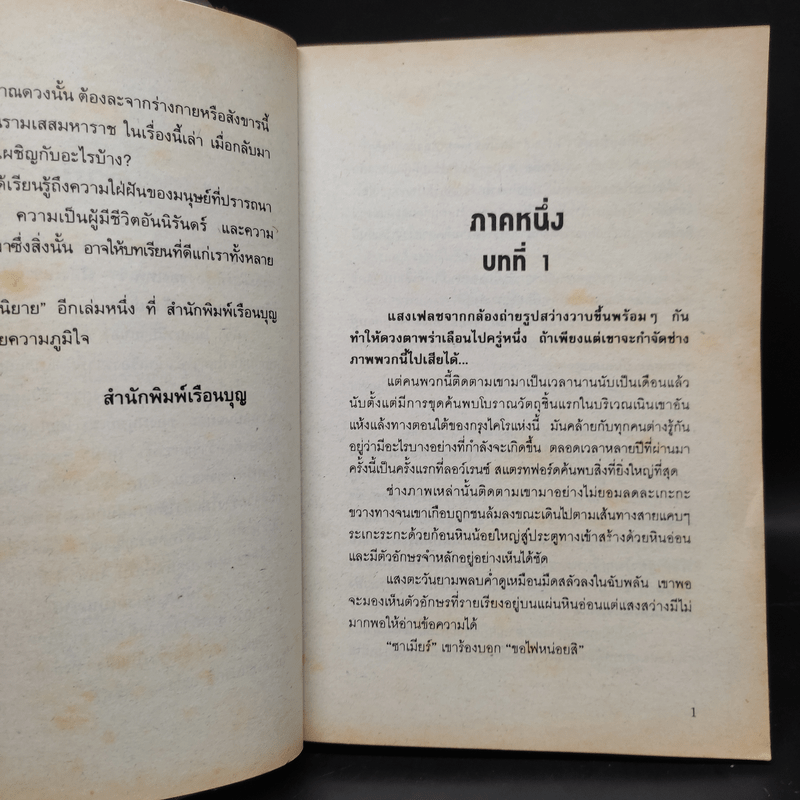 าณดวงนั้น ต้องละจากร่างกายหรือสังขารนี้
นรามเสสมหาราช ในเรื่องนี้เล่า เมื่อกลับมา
ผชิญกับอะไรบ้าง?
ด้เรียนรู้ถึงความใฝ่ฝันของมนุษย์ที่ปรารถนา
ความเป็นผู้มีชีวิตอันนิรันดร์ และความ
าซึ่งสิ่งนั้น อาจให้บทเรียนที่ดีแก่เราทั้งหลาย
นิยาย" อีกเล่มหนึ่ง ที่ สำนักพิมพ์เรือนบุญ
ยความภูมิใจ
สำนักพิมพ์เรือนบุญ
ภาคหนึ่ง
บทที่ 1
แสงเฟลชจากกล้องถ่ายรูปสว่างวาบขึ้นพร้อมๆ กัน
ทำให้ดวงตาพร่าเลือนไปครู่หนึ่ง ถ้าเพียงแต่เขาจะกำจัดช่าง
ภาพพวกนี้ไปเสียได้...
แต่คนพวกนี้ติดตามเขามาเป็นเวลานานนับเป็นเดือนแล้ว
นับตั้งแต่มีการขุดค้นพบโบราณวัตถุชิ้นแรกในบริเวณเนินเขาอัน
แห้งแล้งทางตอนใต้ของกรุงไคโรแห่งนี้ มันคล้ายกับทุกคนต่างรู้กัน
อยู่ว่ามีอะไรบางอย่างที่กำลังจะเกิดขึ้น ตลอดเวลาหลายปีที่ผ่านมา
ครั้งนี้เป็นครั้งแรกที่ลอว์เรนซ์ สแตรทฟอร์ดค้นพบสิ่งที่ยิ่งใหญ่ที่สุด
ช่างภาพเหล่านั้นติดตามเขามาอย่างไม่ยอมลดละเกะกะ
ขวางทางจนเขาเกือบถูกชนล้มลงขณะเดินไปตามเส้นทางสายแคบๆ
ระเกะระกะด้วยก้อนหินน้อยใหญ่สู่ประตูทางเข้าสร้างด้วยหินอ่อน
และมีตัวอักษรจำหลักอยู่อย่างเห็นได้ชัด
แสงตะวันยามพลบค่ำดูเหมือนมืดสลัวลงในฉับพลัน เขาพอ
จะมองเห็นตัวอักษรที่รายเรียงอยู่บนแผ่นหินอ่อนแต่แสงสว่างมีไม่
มากพอให้อ่านข้อความได้
"ซาเมียร์" เขาร้องบอก "ขอไฟหน่อยสิ"
1